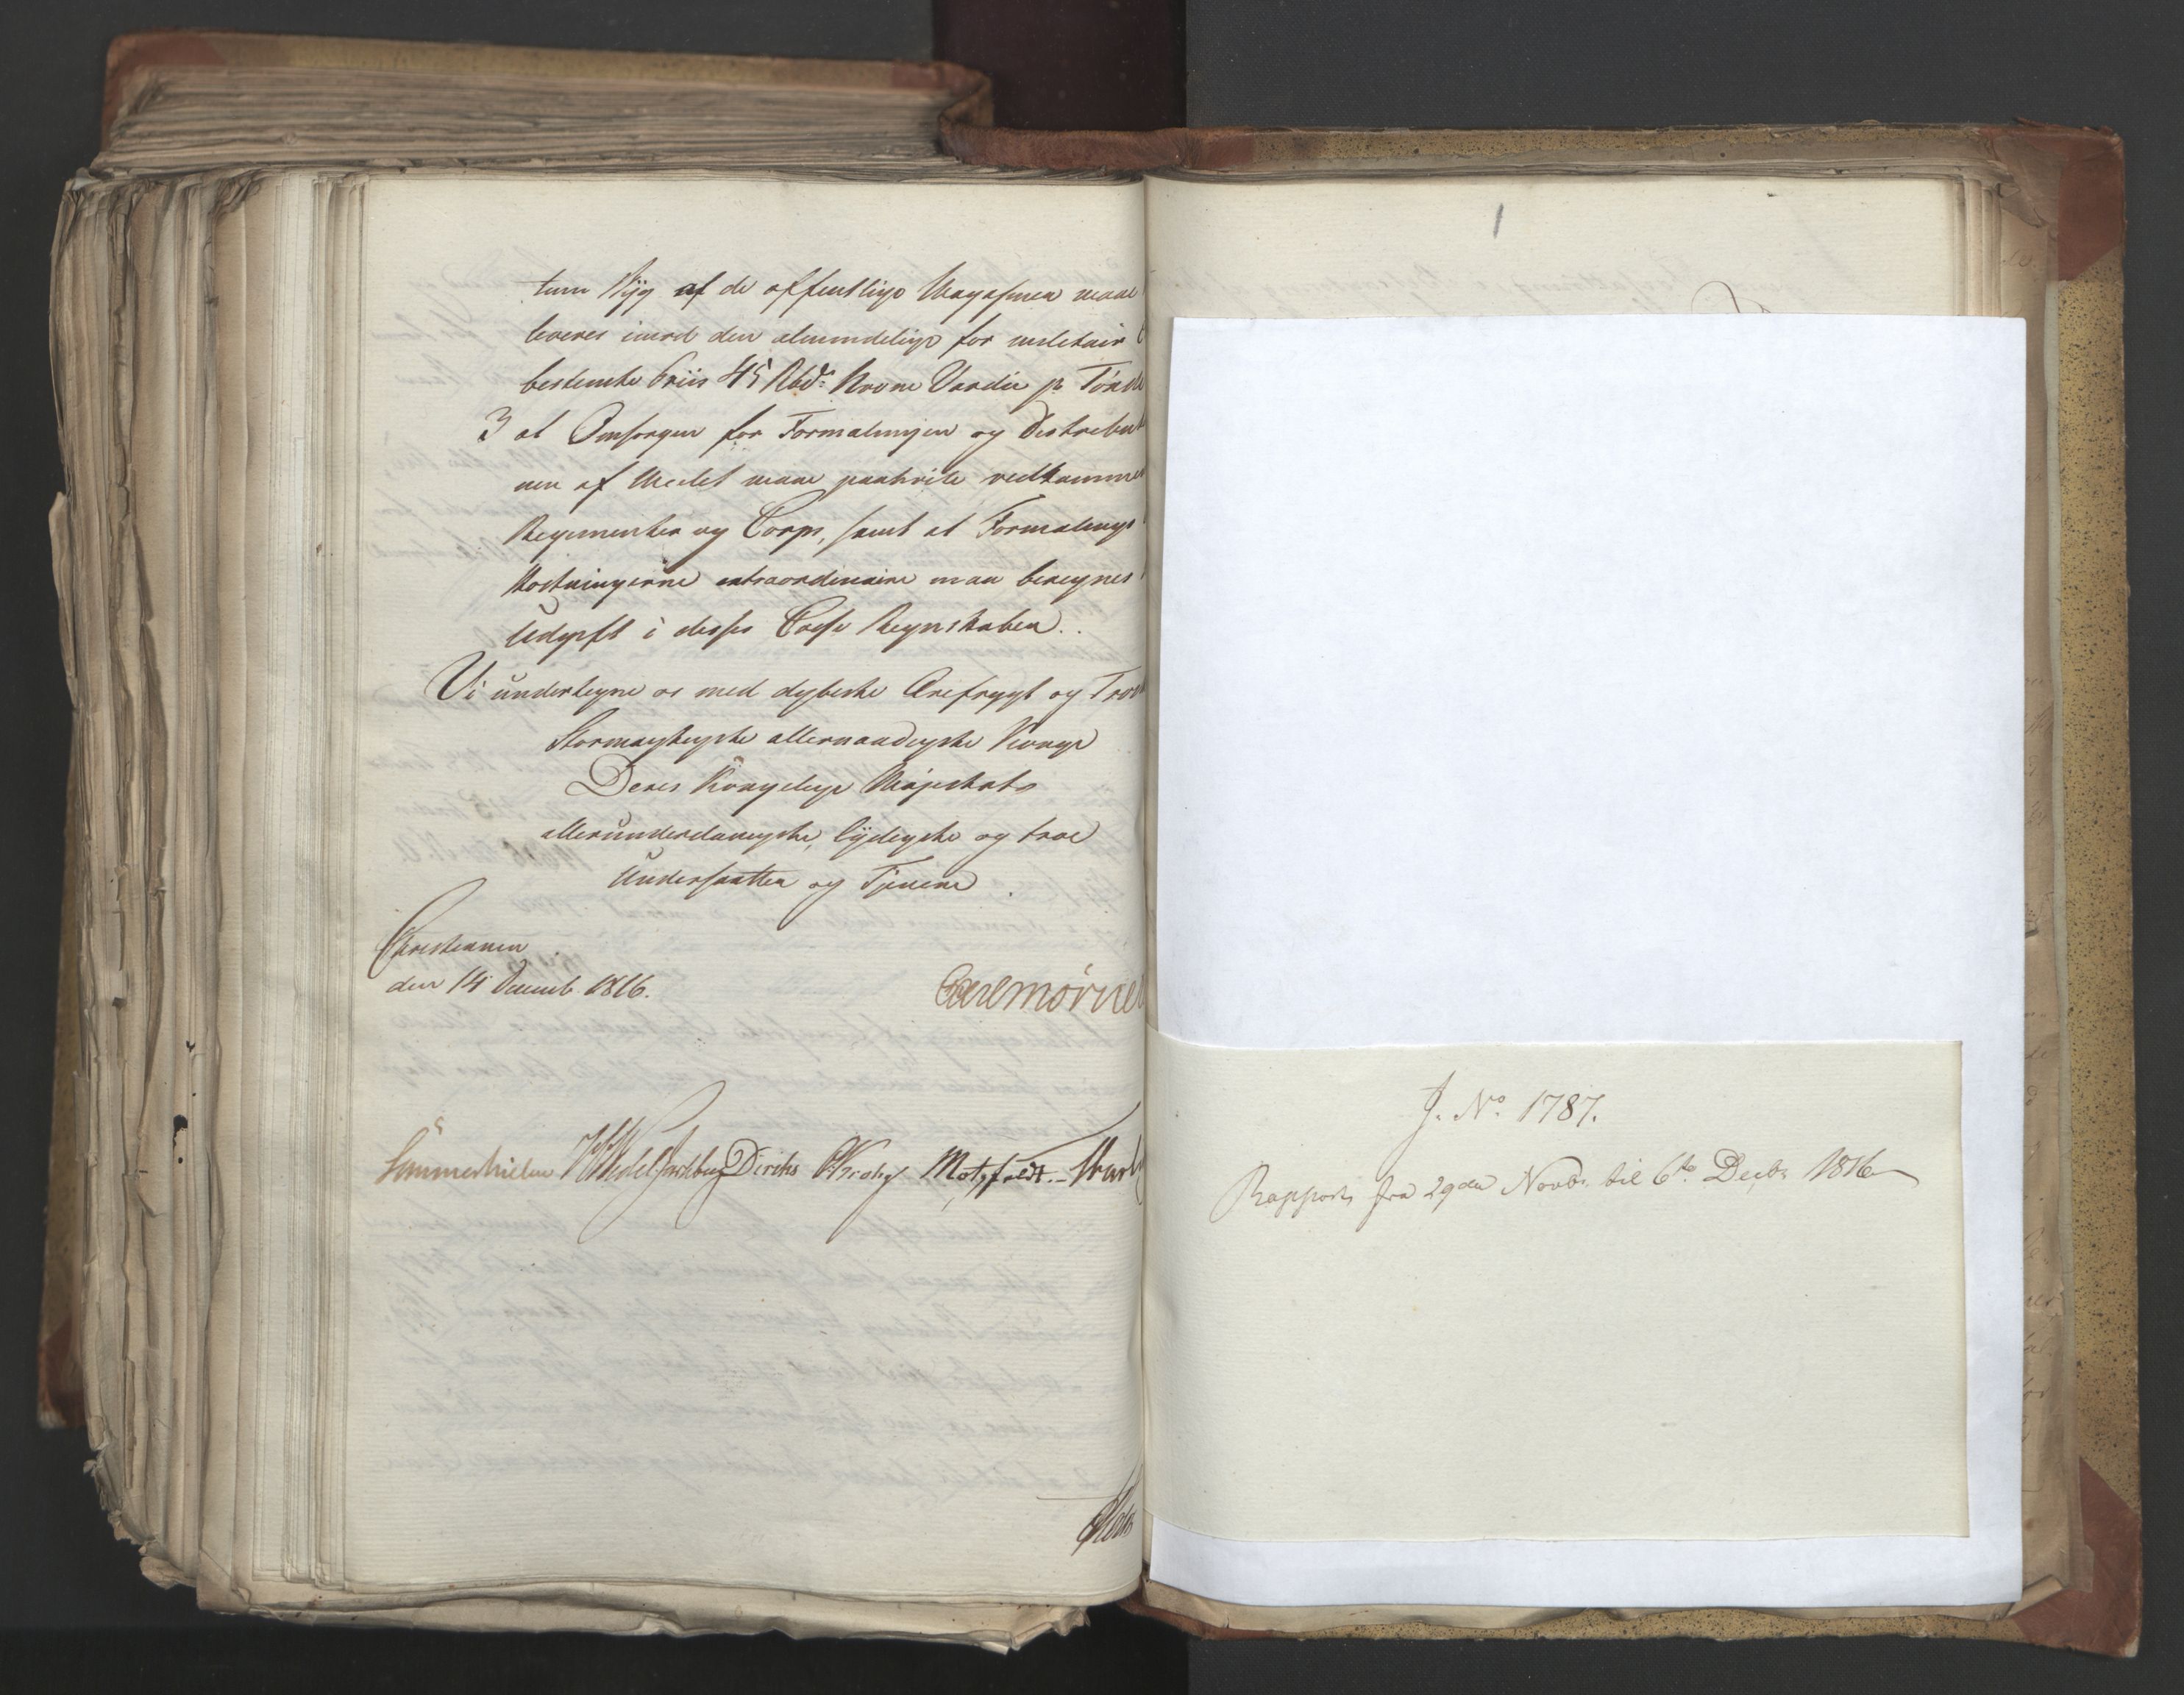 tum Rÿg af de offentlige Magasiner maae
leveres imod den almindelige for militair
bestemte Priis 45 Rbdr Navne Værdie pr Tønde
3 at Omsorgen for Formalingen og Distribut
nen af Melet maae paahvile vedkomme
Regimenter og Corps, samt at Formalings
Kostningerne extraordinaire maa beregnes
Udgift i disses Casse Regnskaber.
Vi undertegne os med dybeste Ærefrygt og Tros
Stormægtigste allernaadigste Konge
Deres Kongelige Majestæts
allerunderdanigste, lÿdigste og troe
Undersaatter og Tjenere
Christiania
den 14 Decemb. 1816.
Carl Mörner
Sommerhielm Wedel Jarlsberg Diriks Krohg Motzfeldt.
1
J. No. 1787.
Rapport fra 29de Novbr. til 6te Decbr. 1816